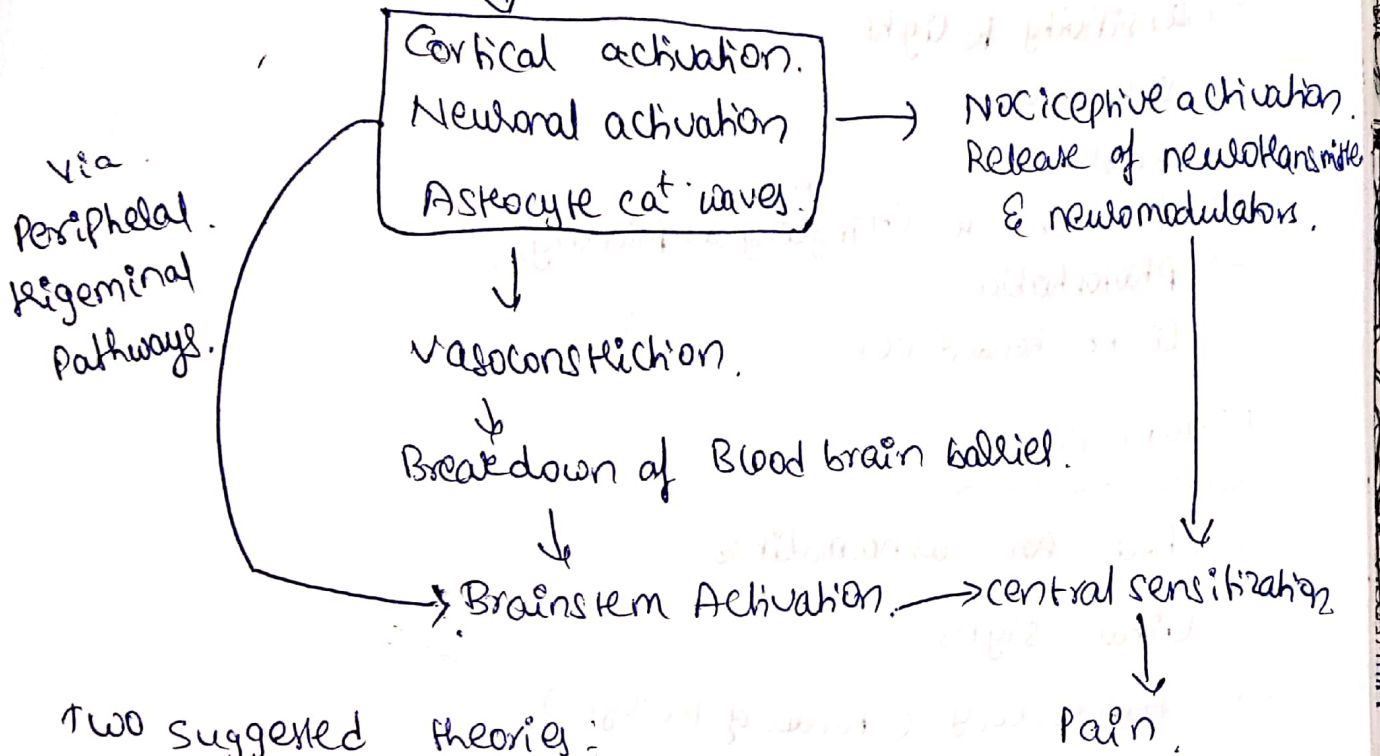 Cortical activation.
Neuronal activation
Astrocyte cat waves.
Nociceptive activation.
Release of neurotransmitte
& neuromodulators.
via
Peripheral.
trigeminal
Pathways.
Vasoconstriction.
Breakdown of Blood brain barrier.
Brainstem Activation.
central sensitization
Pain.
Two suggested theories: